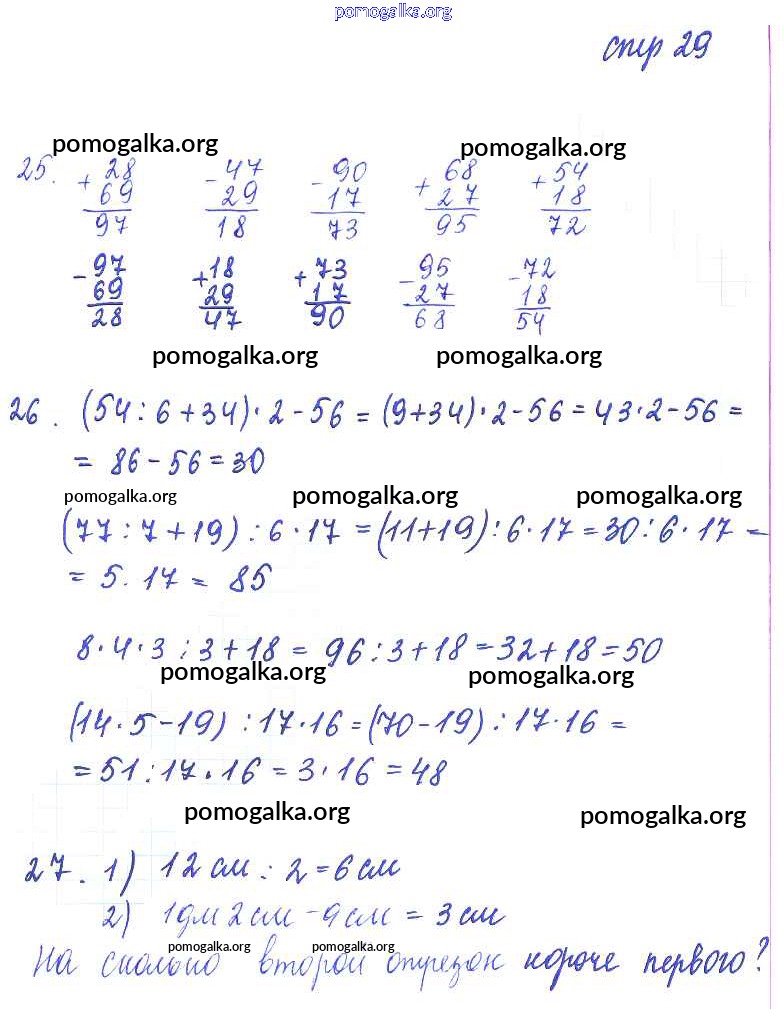 pomogalka.org
стр 29
pomogalka.org pomogalka.org
25. + 28 - 47 - 90 + 68 + 54
69 29 17 27 18
97 18 73 95 72
- 97 + 18 + 73 - 95 - 72
69 29 17 27 18
28 47 90 68 54
pomogalka.org pomogalka.org
26. (54 : 6 + 34) · 2 - 56 = (9 + 34) · 2 - 56 = 43 · 2 - 56 =
= 86 - 56 = 30
pomogalka.org pomogalka.org pomogalka.org
(77 : 7 + 19) : 6 · 17 = (11 + 19) : 6 · 17 = 30 : 6 · 17 =
= 5 . 17 = 85
8 · 4 · 3 : 3 + 18 = 96 : 3 + 18 = 32 + 18 = 50
pomogalka.org pomogalka.org
(14 · 5 - 19) : 17 · 16 = (70 - 19) : 17 · 16 =
= 51 : 17 · 16 = 3 · 16 = 48
pomogalka.org pomogalka.org
27. 1) 12 см : 2 = 6 см
2) 1 дм 2 см - 9 см = 3 см
pomogalka.org pomogalka.org
На сколько второй отрезок короче первого?